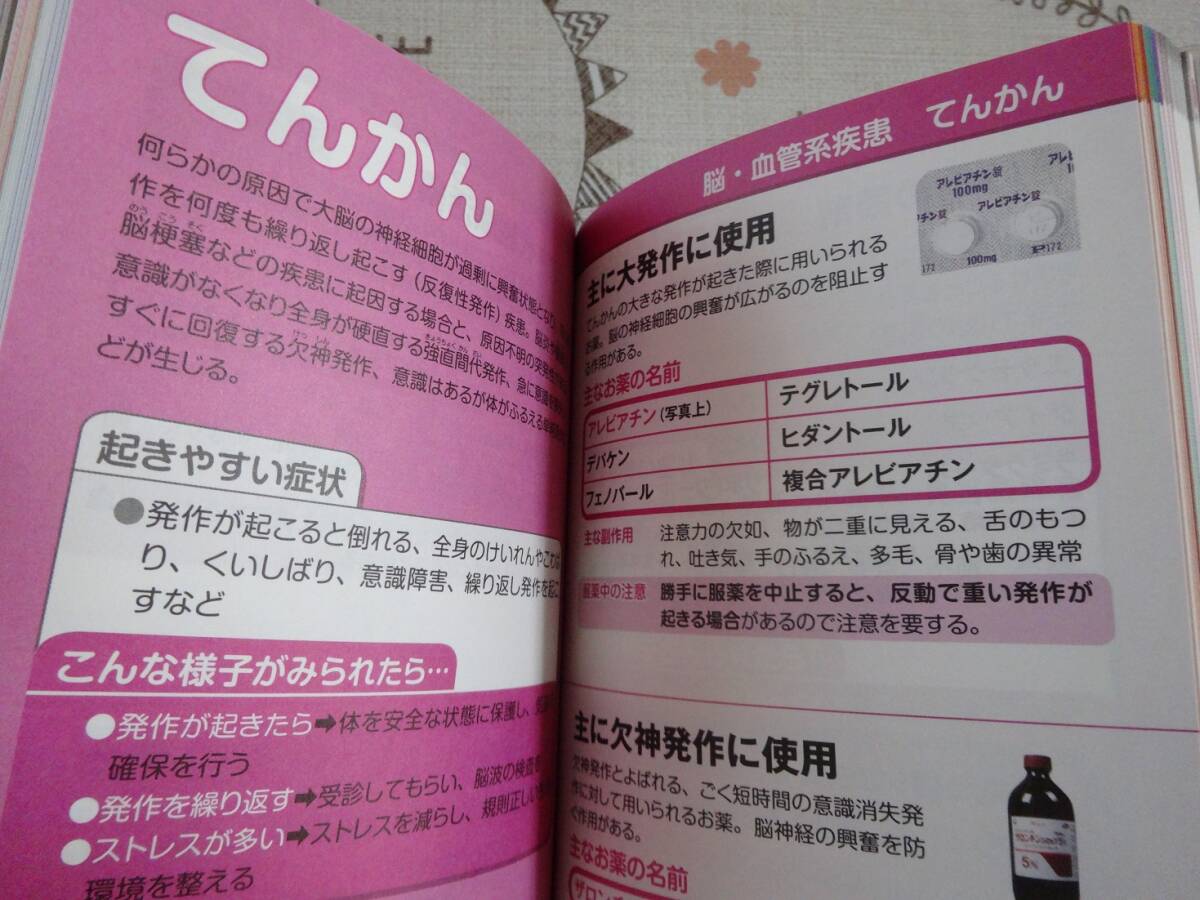 てんかん
何らかの原因で大脳の神経細胞が過剰に興奮状態となり、
作を何度も繰り返し起こす(反復性発作)疾患。脳炎や
脳梗塞などの疾患に起因する場合と、原因不明の突発性
意識がなくなり全身が硬直する強直間代発作、急に意識
すぐに回復する欠神発作、意識はあるが体がふるえる
どが生じる。
起きやすい症状
●発作が起こると倒れる、全身のけいれんやこわば
り、くいしばり、意識障害、繰り返し発作を起こ
すなど
こんな様子がみられたら…
●発作が起きたら➡体を安全な状態に保護し、気道
確保を行う
●発作を繰り返す➡受診してもらい、脳波の検査を
●ストレスが多い➡ストレスを減らし、規則正しい
環境を整える
脳・血管系疾患 てんかん
アレビアチン錠
100mg
アレビアチン錠
チン錠
172
100mg
172
主に大発作に使用
てんかんの大きな発作が起きた際に用いられる
お薬。脳の神経細胞の興奮が広がるのを阻止す
る作用がある。
主なお薬の名前
アレビアチン(写真上) テグレトール
デパケン ヒダントール
フェノバール 複合アレビアチン
主な副作用 注意力の欠如、物が二重に見える、舌のもつ
れ、吐き気、手のふるえ、多毛、骨や歯の異常
服薬中の注意 勝手に服薬を中止すると、反動で重い発作が
起きる場合があるので注意を要する。
主に欠神発作に使用
欠神発作とよばれる、ごく短時間の意識消失発
作に対して用いられるお薬。脳神経の興奮を防
ぐ作用がある。
主なお薬の名前
ザロン
5%